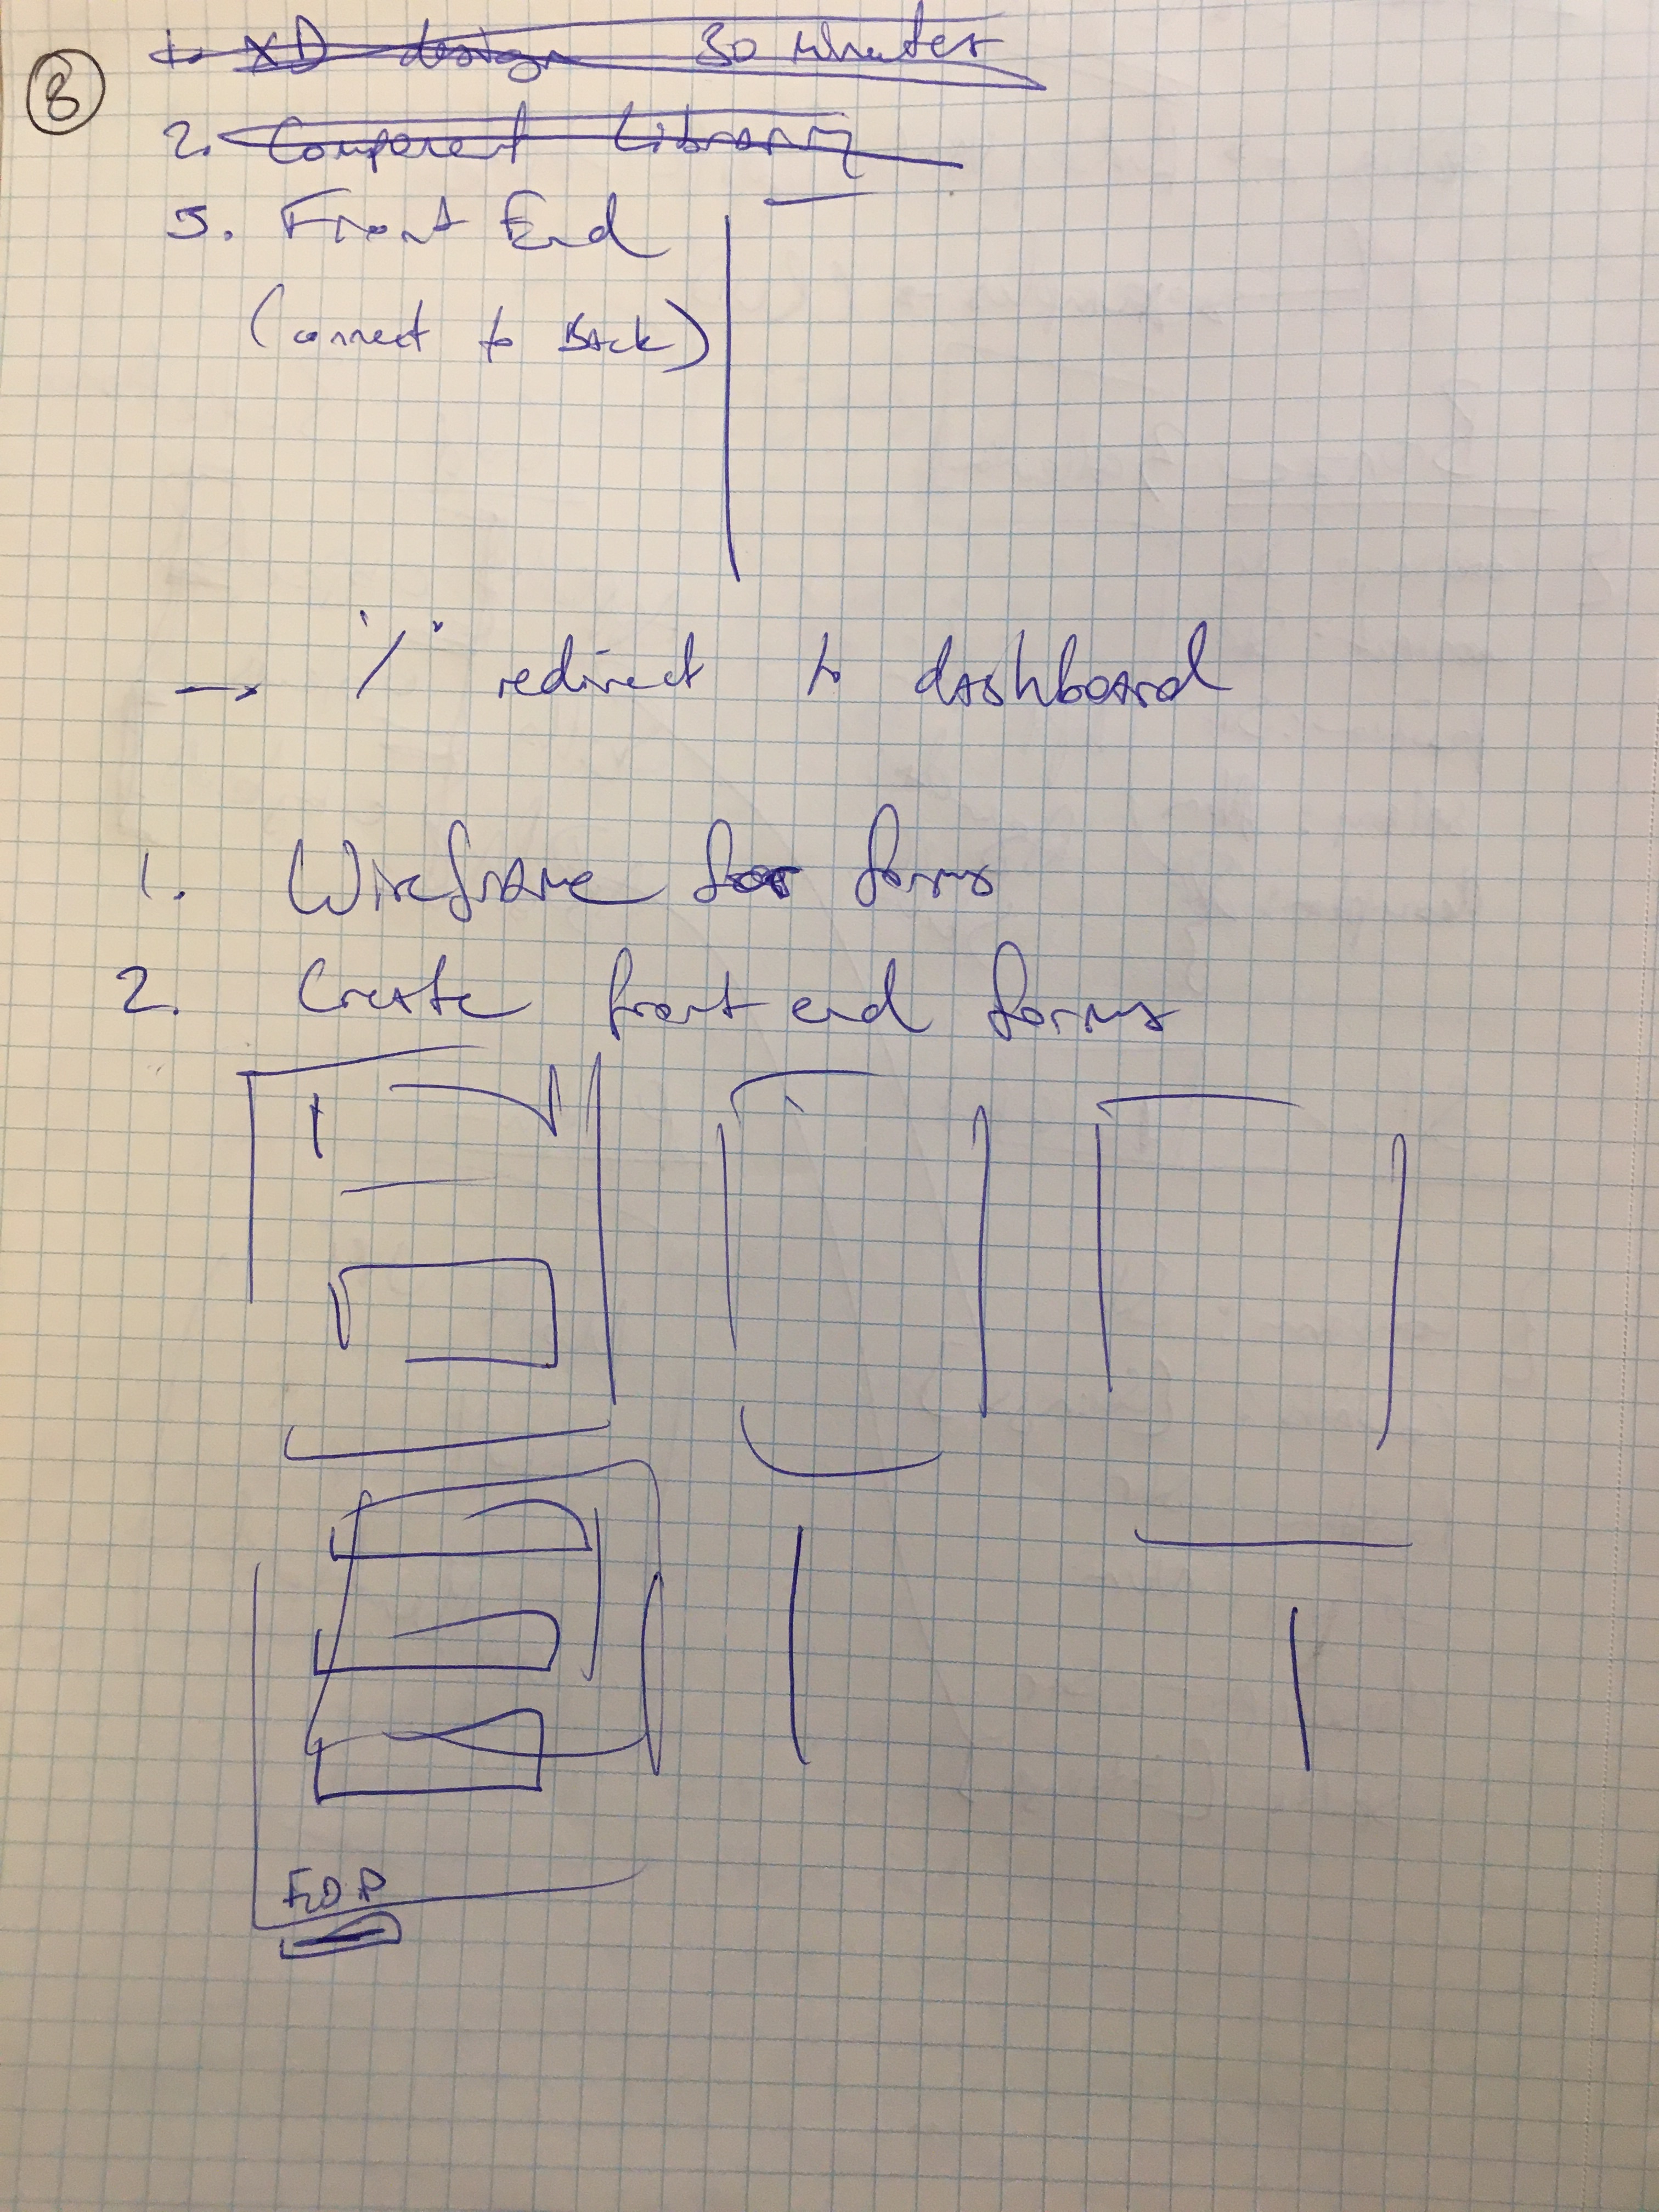 8
1. XD design 30 minutes
2. Component Library
3. Front End
(connect to Back)
→ "/" redirect to dashboard
1. Wireframe for forms
2. Create front end forms